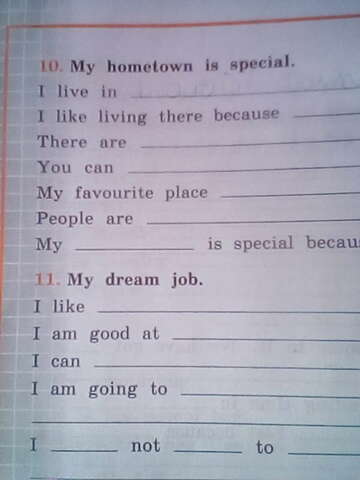 10. My hometown is special.
I live in
I like living there because
There are
You can
My favourite place
People are
My ____________ is special becau
11. My dream job.
I like
I am good at
I can
I am going to
I ______ not ______ to